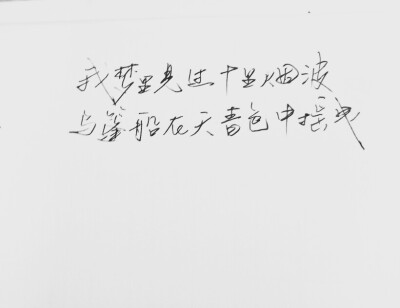 我梦里见过十里烟波
乌篷船在天青色中摇曳